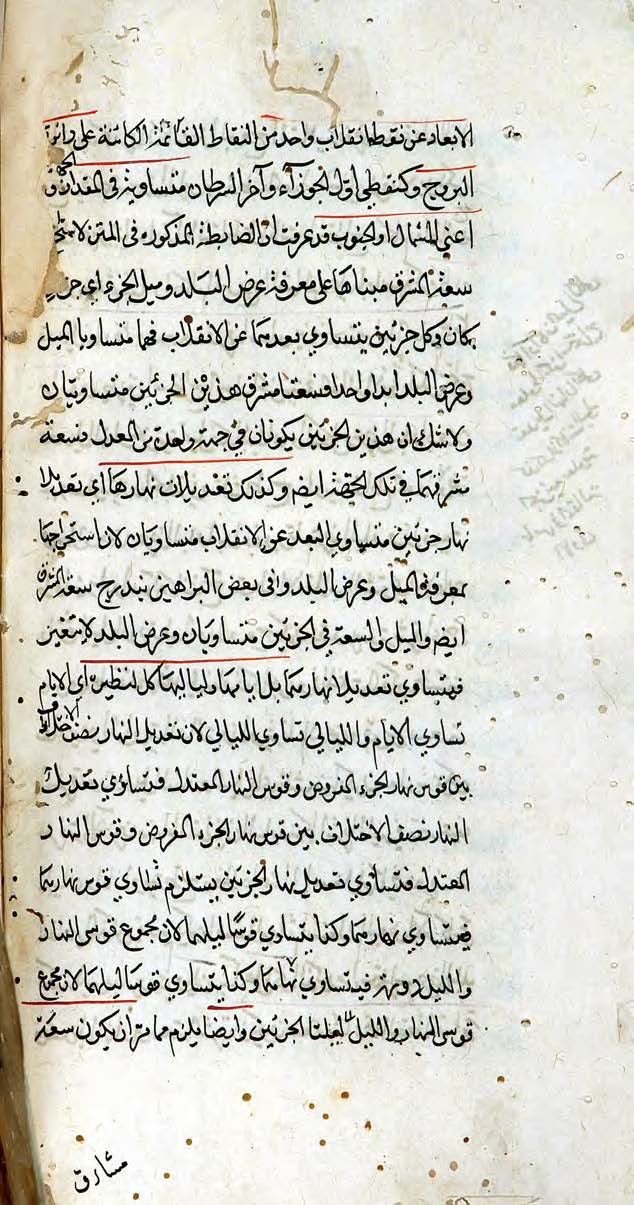 الابعاد عن نقطة انقلاب واحد من النقاط القائمة الكائنة على دائرة
البروج وكنقطتي اول الجوزآء وآخر السرطان متساوية في المقدار والجهة
اعني الشمال او الجنوب قد عرفت ان الضابطة المذكورة في المتن لاستخراج
سعة المشرق مبناها على معرفة عرض البلد وميل الجزء اي جزء
كان وكل جزئين يتساوي بعدهما عن الانقلاب فهما متساويا الميل
وعرض البلد ابدا واحد فسعتا مشرق هذين الجزئين متساويتان
ولا شك ان هذين الجزئين يكونان في جهة واحدة من المعدل فسعة
مشرقهما في تلك الجهة ايضا وكذلك تعديلات نهارها اي تعديلا
نهار جزئين متساوي البعد عن الانقلاب متساويان لان استخراجها
بمعرفة الميل وعرض البلد وفي بعض البراهين يندرج سعة المشرق
ايضا والميل والسعة في الجزئين متساويان وعرض البلد لا يتغير
فيتساوي تعديلا نهارهما بل ايامها ولياليها كل لنظيره اي الايام
تساوي الايام والليالي تساوي الليالي لان تعديل النهار نصف الاختلاف
بين قوس نهار الجزء المفروض وقوس النهار المعتدل فتساوي تعديل
النهار نصف الاختلاف بين قوس نهار الجزء المفروض وقوس النهار
المعتدل فتساوي تعديل نهار الجزئين يستلزم تساوي قوس نهارهما
فيتساوي نهارهما وكذا يتساوي قوسا ليلهما لان مجموع قوسي النهار
والليل دورة فيتساوي نهارهما وكذا يتساوي قوسا ليلهما لان مجموع
قوس النهار والليل الجزئين وايضا يلزم مما مر ان يكون سعة
مشارق